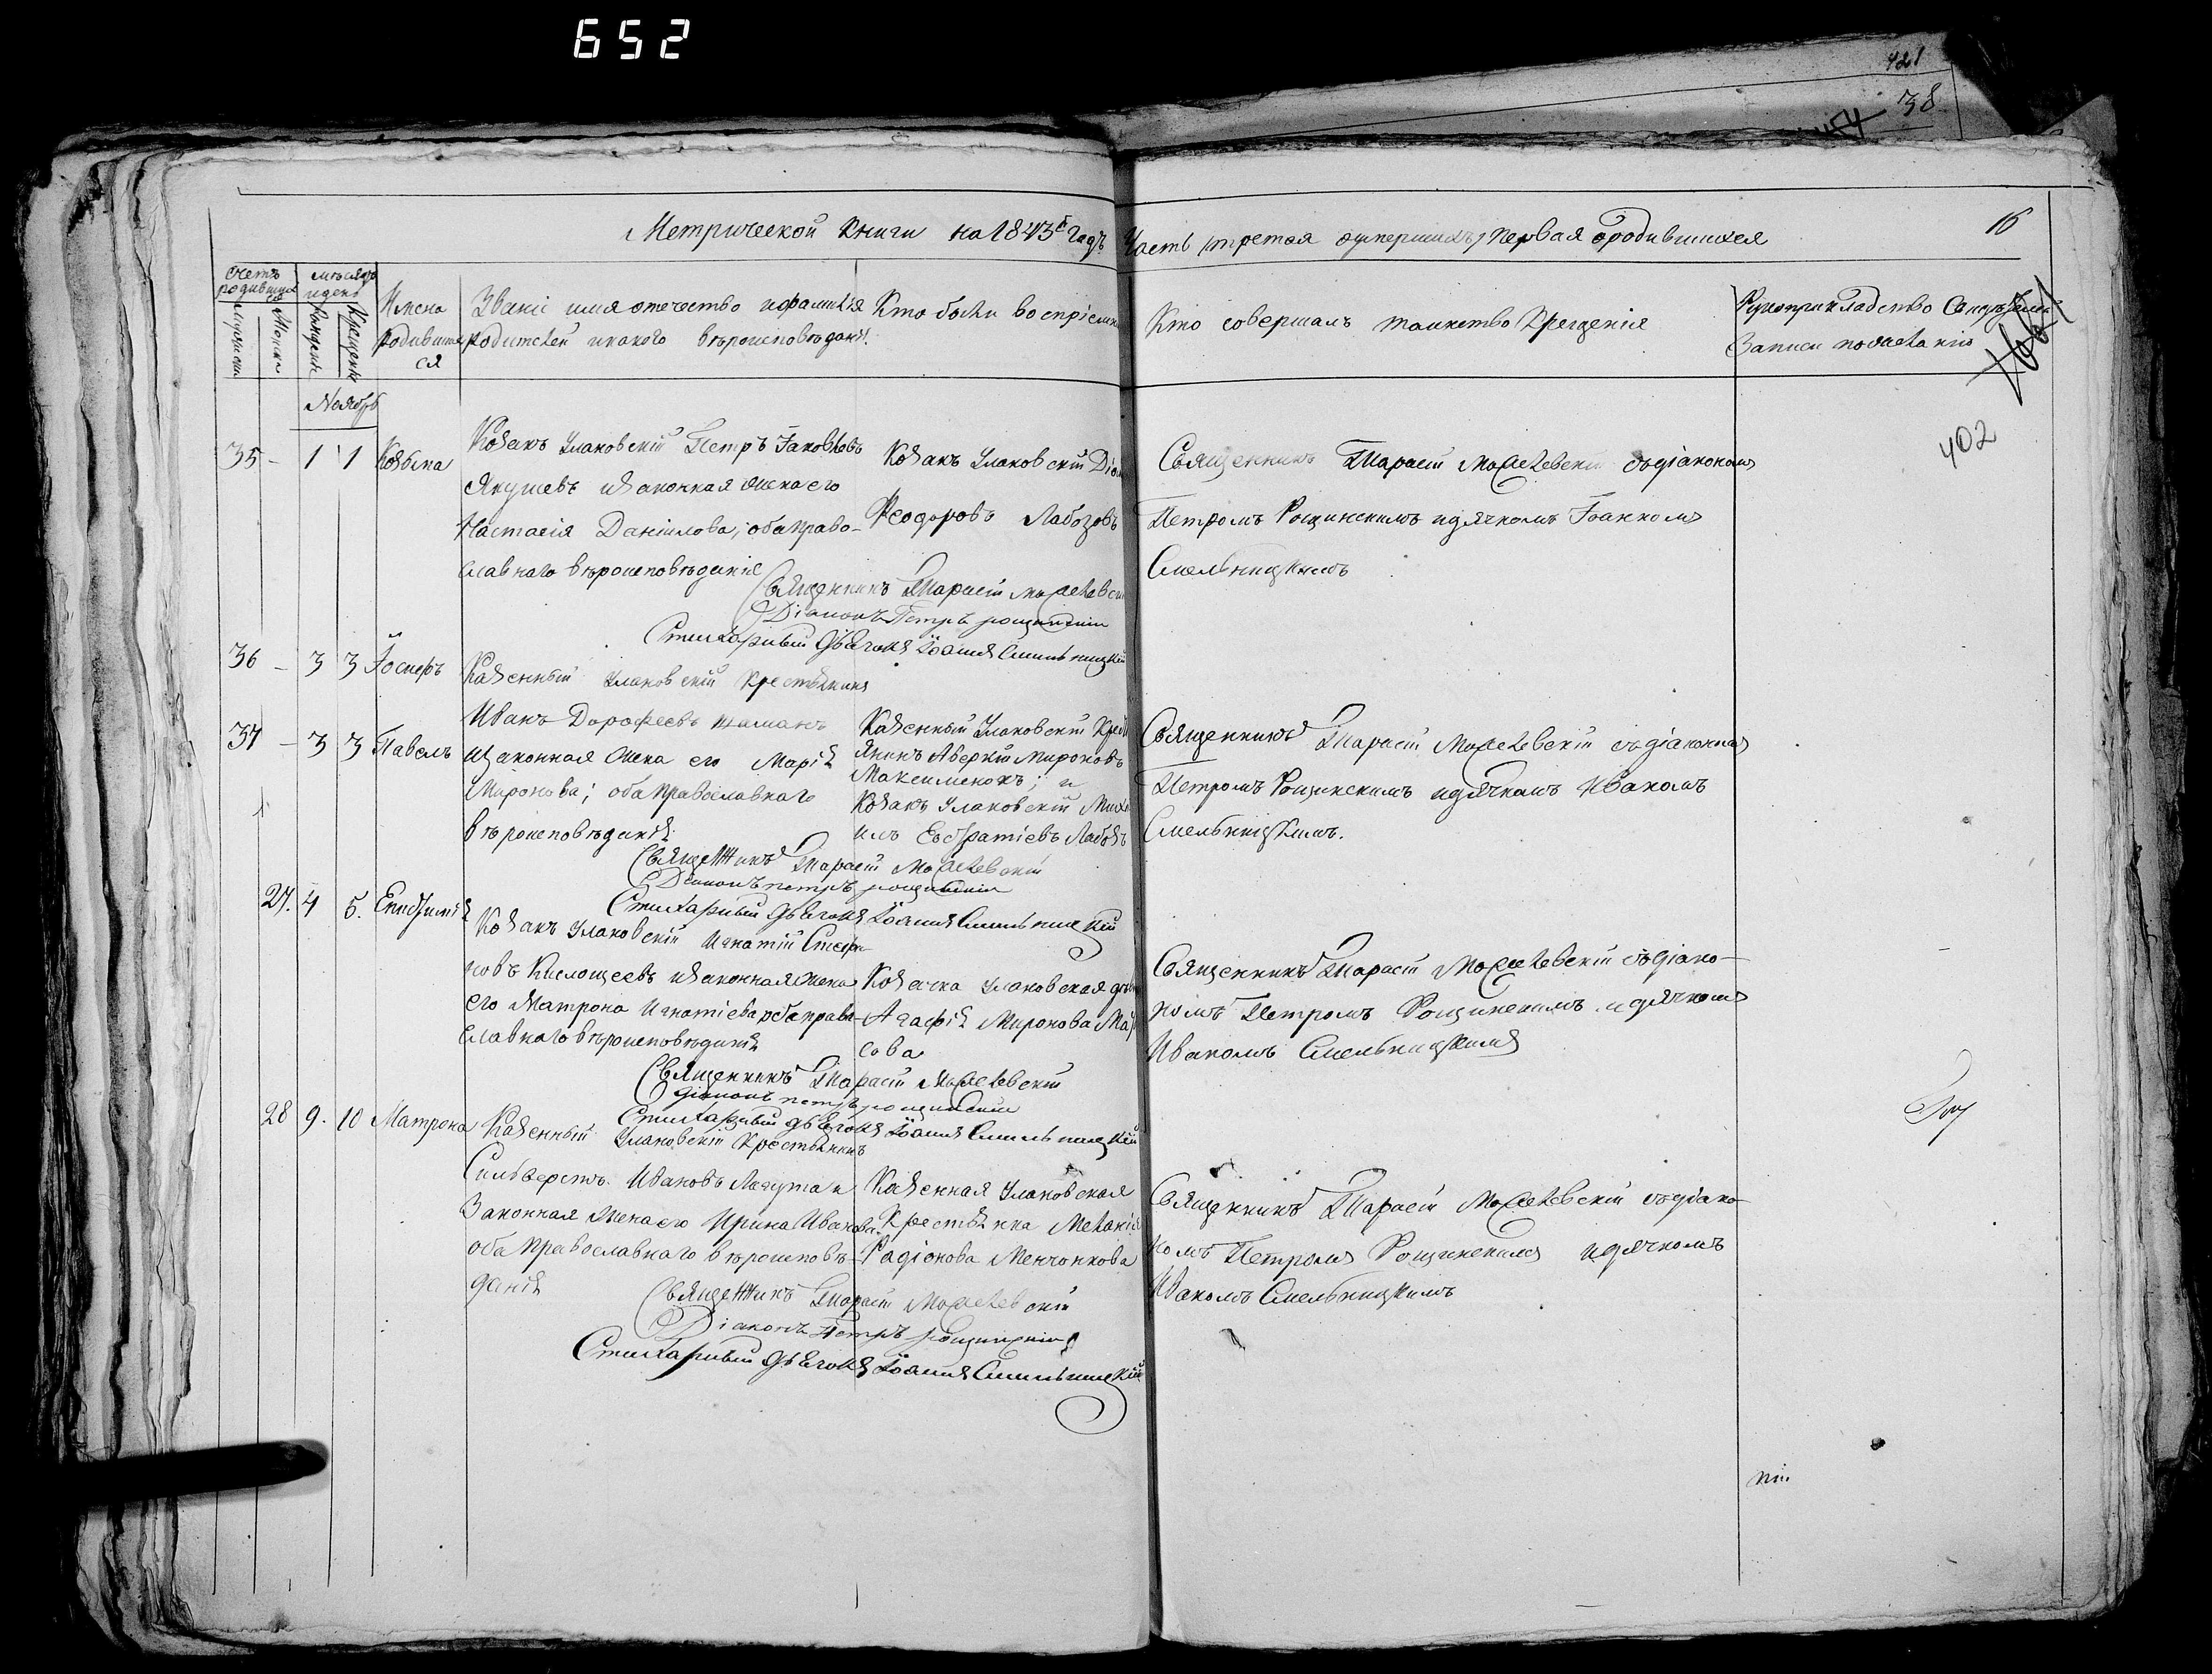 652
421
38
Метрической Книги на 1843й годъ Часть первая о родившихся
16
Счетъ родившихся
Мѣсяцъ и день
Имена родившихся
Званіе имя отечество и фамилія родителей и какого вѣроисповѣданія.
Кто были воспріемники
Кто совершалъ таинство Крещенія
Рукоприкладство Свидѣтелей Записи по желанію
402
Ноябрь
35 - 1 1 Козьма
Козакъ Улановскій Петръ Іаковлевъ
Якушевъ и законная жена его
Настасія Даніилова, оба право-
славнаго вѣроисповѣданіе
Козакъ Улановскій
Феодоровъ Лабозовъ
Священникъ Тарасій съ діакономъ
Петромъ Рощинскимъ и дячкомъ Іоанномъ
Смельницкимъ
Священникъ Тарасій
Діаконъ Петръ рощинскій
Стихарный дьячокъ Іоаннъ Смильницкій
36 - 3 3 Іосифъ
37 - 3 3 Павелъ
Казенный Улановскій Крестьянинъ
Иванъ Дорофеевъ
и законная жена его Марія
Миронова; оба православнаго
вѣроисповѣданія.
Казенный Улановскій Крест
янинъ Аверкій Мироновъ
Максименокъ; и
Козакъ Улановскій Миха
илъ Евстратіевъ
Священникъ Тарасій съ діакономъ
Петромъ Рощинскимъ и дячкомъ Иваномъ
Смельницкимъ.
Священникъ Тарасій
Діаконъ петръ рощинскій
Стихарный дьячокъ Іоаннъ Смильницкій
27. 4 5.
Козакъ Улановскій Игнатій Стефа-
новъ Кислощеевъ и законная жена
его Матрона Игнатіева оба право-
славнаго вѣроисповѣданія
Козачка Улановская
Агафія Миронова
сова
Священникъ Тарасій съ діако-
номъ Петромъ Рощинскимъ и дячкомъ
Иваномъ Смельницкимъ
Священникъ Тарасій
діаконъ петръ рощинскій
Стихарный дьячокъ Іоаннъ Смильницкій
28 9. 10 Матрона
Казенный Улановскій Крестьянинъ
Сильверстъ Ивановъ Лагута и
Законная жена его Ирина Иванова
оба Православнаго вѣроисповѣ-
данія
Казенная Улановская
Крестьянка Меланія
Радіонова Менчонкова
Священникъ Тарасій съ діако-
номъ Петромъ Рощинскимъ и дячкомъ
Иваномъ Смельницкимъ
Священникъ Тарасій
Діаконъ Петръ рощинскій
Стихарный дьячокъ Іоаннъ Смильницкій